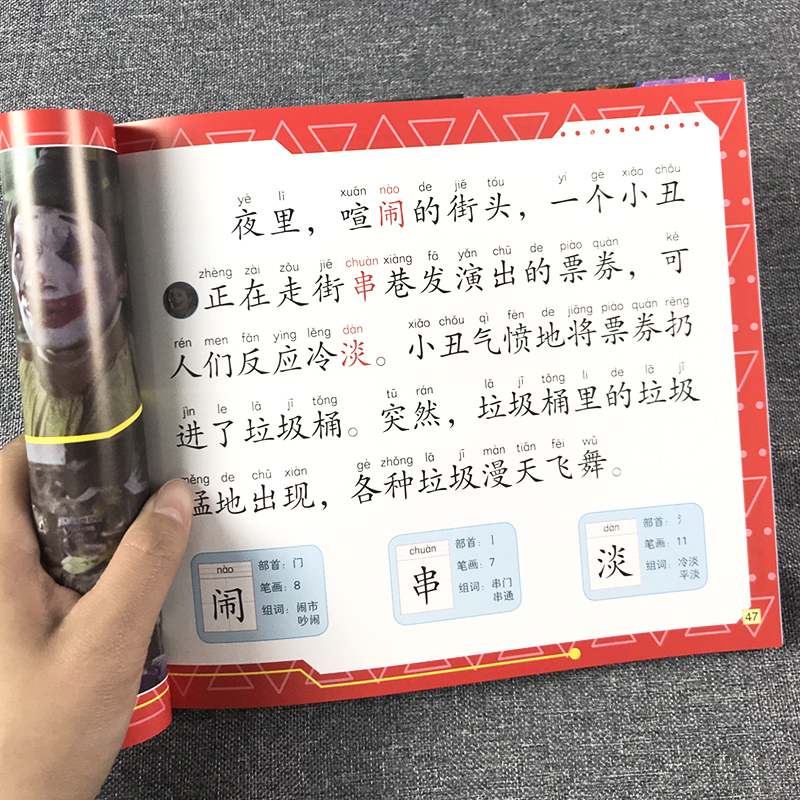 yè lǐ xuān nào de jiē tóu yí gè xiǎo chǒu
夜里，喧闹的街头，一个小丑
zhèng zài zǒu jiē chuàn xiàng fā yǎn chū de piào quàn kě
正在走街串巷发演出的票券，可
rén men fǎn yìng lěng dàn xiǎo chǒu qì fèn de jiāng piào quàn rēng
人们反应冷淡。小丑气愤地将票券扔
jìn le lā jī tǒng tū rán lā jī tǒng lǐ de lā jī
进了垃圾桶。突然，垃圾桶里的垃圾
měng de chū xiàn gè zhǒng lā jī màn tiān fēi wǔ
猛地出现，各种垃圾漫天飞舞。
nào
闹
部首：门
笔画：8
组词：闹市
吵闹
chuàn
串
部首：丨
笔画：7
组词：串门
串通
dàn
淡
部首：氵
笔画：11
组词：冷淡
平淡
47